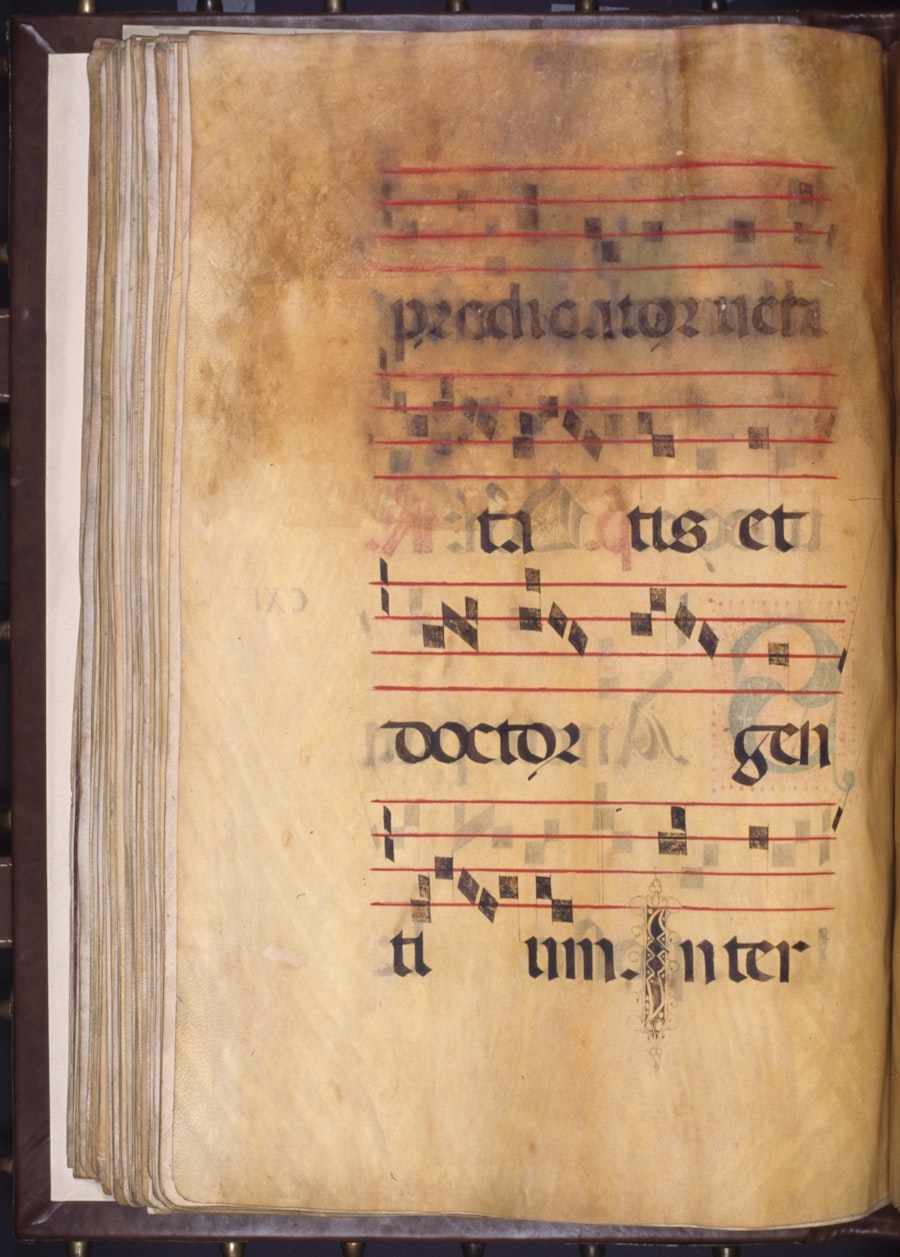 predicator ueri
ta tis et
doctor gen
ti um. Inter